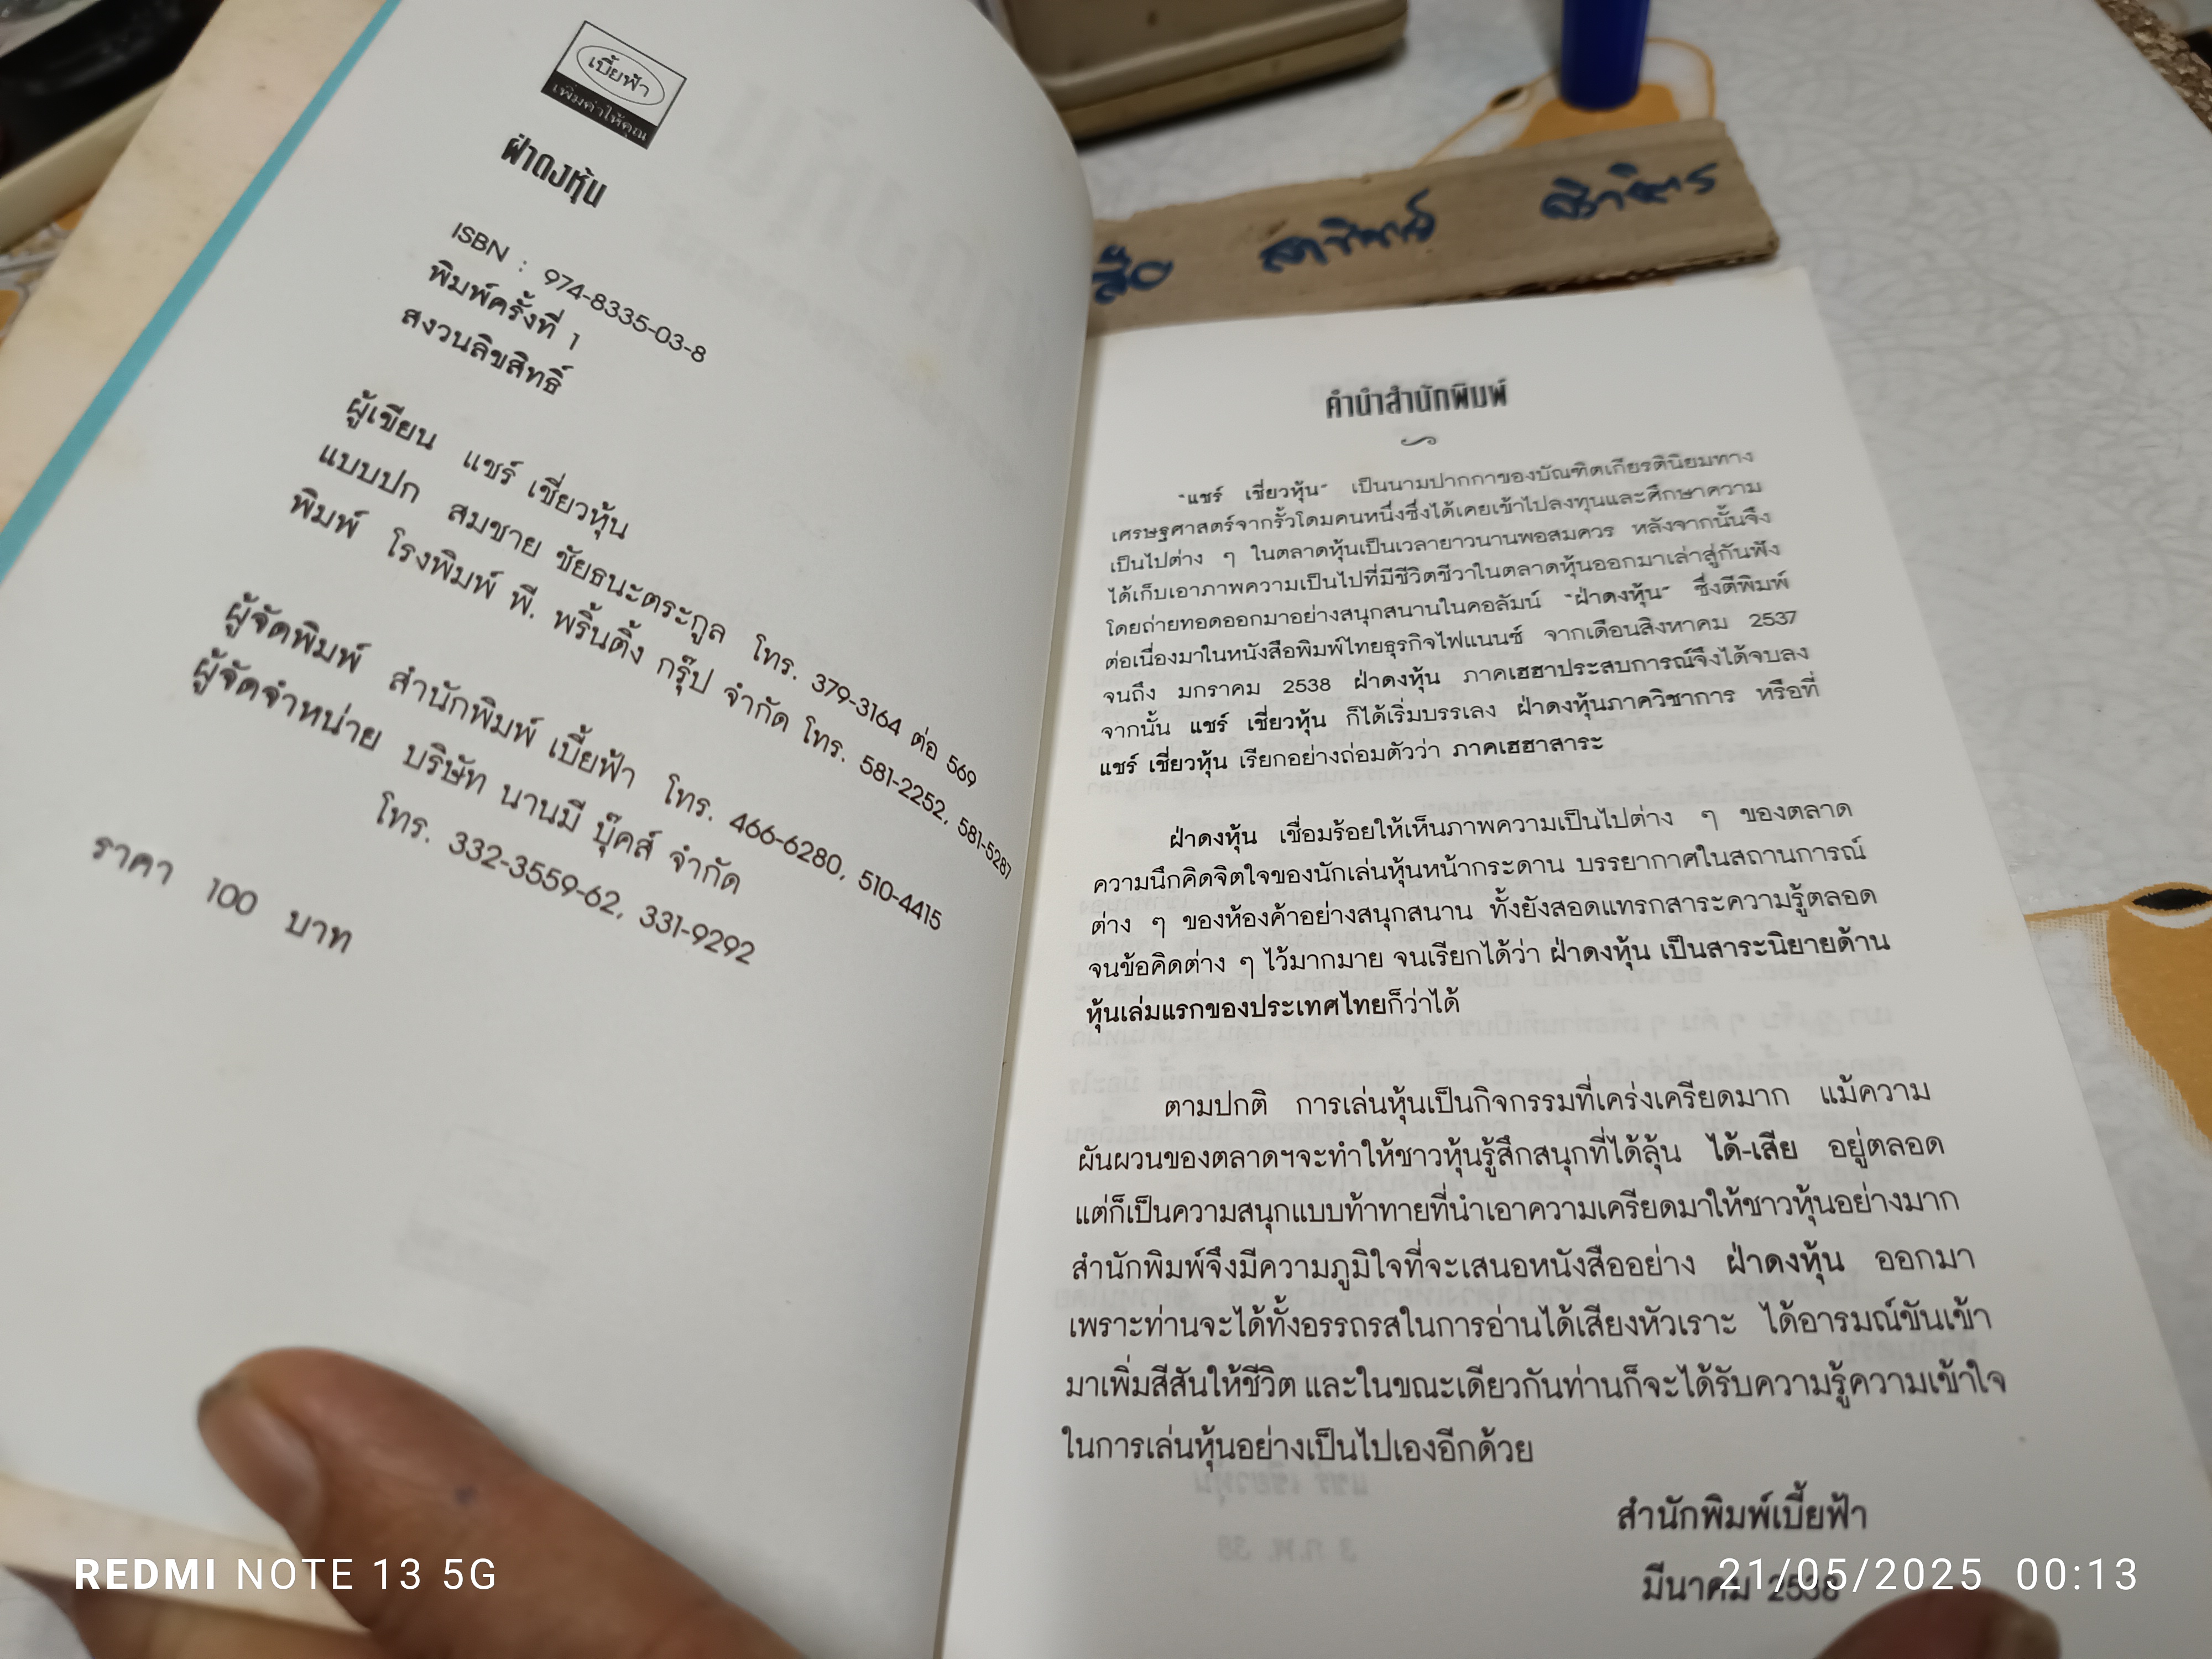 เบี้ยฟ้า
เพิ่มค่าให้คุณ
ฝ่าดงหุ้น
ISBN : 974-8335-03-8
พิมพ์ครั้งที่ 1
สงวนลิขสิทธิ์
ผู้เขียน แชร์ เชี่ยวหุ้น
แบบปก สมชาย ชัยธนะตระกูล โทร. 379-3164 ต่อ 569
พิมพ์ โรงพิมพ์ พี. พริ้นติ้ง กรุ๊ป จำกัด โทร. 581-2252, 581-5287
ผู้จัดพิมพ์ สำนักพิมพ์ เบี้ยฟ้า โทร. 466-6280, 510-4415
ผู้จัดจำหน่าย บริษัท นานมี บุ๊คส์ จำกัด
โทร. 332-3559-62, 331-9292
ราคา 100 บาท
คำนำสำนักพิมพ์
"แชร์ เชี่ยวหุ้น" เป็นนามปากกาของบัณฑิตเกียรตินิยมทาง
เศรษฐศาสตร์จากรั้วโดมคนหนึ่งซึ่งได้เคยเข้าไปลงทุนและศึกษาความ
เป็นไปต่าง ๆ ในตลาดหุ้นเป็นเวลายาวนานพอสมควร หลังจากนั้นจึง
ได้เก็บเอาภาพความเป็นไปที่มีชีวิตชีวาในตลาดหุ้นออกมาเล่าสู่กันฟัง
โดยถ่ายทอดออกมาอย่างสนุกสนานในคอลัมน์ "ฝ่าดงหุ้น" ซึ่งตีพิมพ์
ต่อเนื่องมาในหนังสือพิมพ์ไทยธุรกิจไฟแนนซ์ จากเดือนสิงหาคม 2537
จนถึง มกราคม 2538 ฝ่าดงหุ้น ภาคเฮฮาประสบการณ์จึงได้จบลง
จากนั้น แชร์ เชี่ยวหุ้น ก็ได้เริ่มบรรเลง ฝ่าดงหุ้นภาควิชาการ หรือที่
แชร์ เชี่ยวหุ้น เรียกอย่างถ่อมตัวว่า ภาคเฮฮาสาระ
ฝ่าดงหุ้น เชื่อมร้อยให้เห็นภาพความเป็นไปต่าง ๆ ของตลาด
ความนึกคิดจิตใจของนักเล่นหุ้นหน้ากระดาน บรรยากาศในสถานการณ์
ต่าง ๆ ของห้องค้าอย่างสนุกสนาน ทั้งยังสอดแทรกสาระความรู้ตลอด
จนข้อคิดต่าง ๆ ไว้มากมาย จนเรียกได้ว่า ฝ่าดงหุ้น เป็นสาระนิยายด้าน
หุ้นเล่มแรกของประเทศไทยก็ว่าได้
ตามปกติ การเล่นหุ้นเป็นกิจกรรมที่เคร่งเครียดมาก แม้ความ
ผันผวนของตลาดฯจะทำให้ชาวหุ้นรู้สึกสนุกที่ได้ลุ้น ได้-เสีย อยู่ตลอด
แต่ก็เป็นความสนุกแบบท้าทายที่นำเอาความเครียดมาให้ชาวหุ้นอย่างมาก
สำนักพิมพ์จึงมีความภูมิใจที่จะเสนอหนังสืออย่าง ฝ่าดงหุ้น ออกมา
เพราะท่านจะได้ทั้งอรรถรสในการอ่านได้เสียงหัวเราะ ได้อารมณ์ขันเข้า
มาเพิ่มสีสันให้ชีวิต และในขณะเดียวกันท่านก็จะได้รับความรู้ความเข้าใจ
ในการเล่นหุ้นอย่างเป็นไปเองอีกด้วย
สำนักพิมพ์เบี้ยฟ้า
มีนาคม 2538
REDMI NOTE 13 5G
21/05/2025 00:13